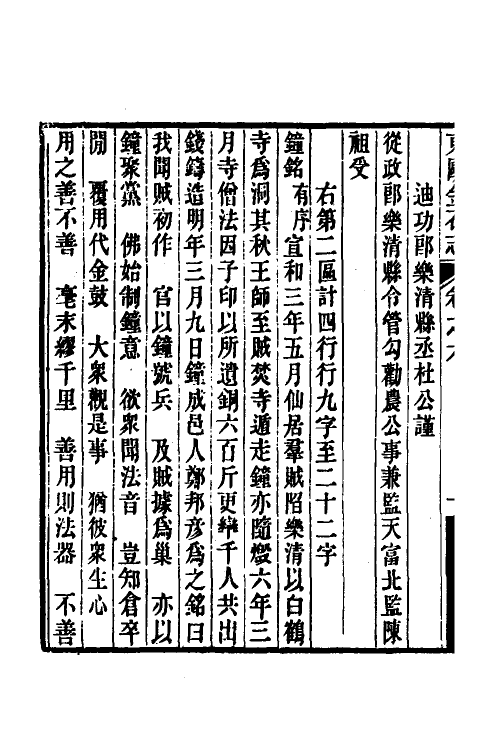 東甌金石志 卷六
迪功郎樂淸縣丞杜公謹
從政郎樂淸縣令管勾勸農公事兼監天富北監陳
祖受
右第二區計四行行九字至二十二字
鐘銘 有序 宣和三年五月仙居羣賊陷樂淸以白鶴
寺爲洞其秋王師至賊焚寺遁走鐘亦隨燬六年三
月寺僧法因子印以所遺銅六百斤更率千人共出
錢鑄造明年三月九日鐘成邑人鄭邦彥爲之銘曰
我聞賊初作 官以鐘號兵 及賊據爲巢 亦以
鐘聚黨 佛始制鐘意 欲衆聞法音 豈知倉卒
閒 覆用代金鼓 大衆觀是事 猶彼衆生心
用之善不善 毫末繆千里 善用則法器 不善